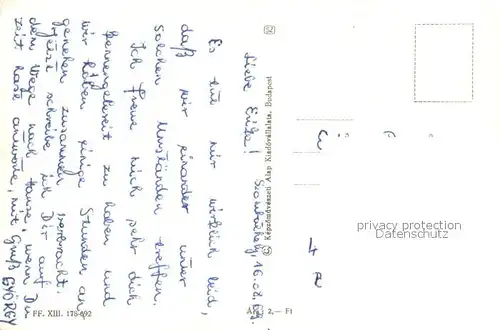 Liebe Erika! Szombathely, 16.08.68.
Es tut mir wirklich leid,
daß wir einander unter
solchen Umständen treffen.
Ich freue mich sehr dich
kennengelernt zu haben und
wir haben einige Stunden an-
genehm zusammen verbracht.
Jetzt schreibe ich Dir auf
dem Wege nach Hause, wenn Du
Zeit hast antworte, mit Gruß GYÖRGY
Képzőművészeti Alap Kiadóvállalata, Budapest
FF. XIII. 178-692
Ára: 2,— Ft
privacy protection
Datenschutz